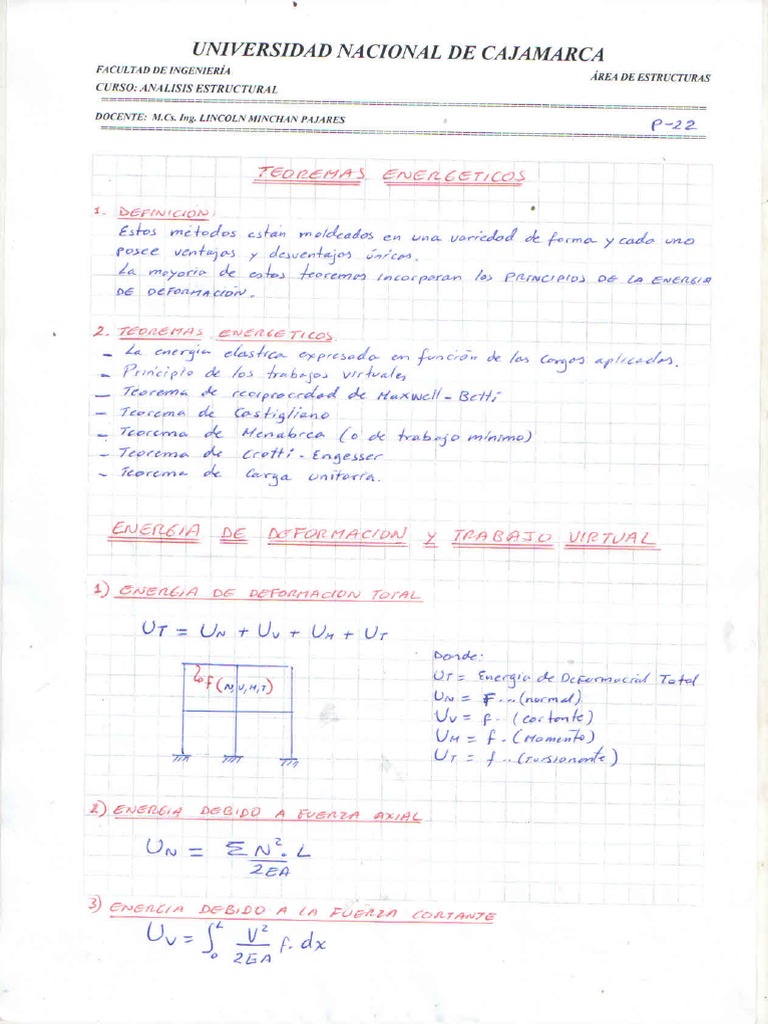 UNIVERSIDAD NACIONAL DE CAJAMARCA
FACULTAD DE INGENIERÍA
ÁREA DE ESTRUCTURAS
CURSO: ANALISIS ESTRUCTURAL
DOCENTE: M.Cs. Ing. LINCOLN MINCHAN PAJARES
P-22
TEOREMAS ENERGETICOS
1. DEFINICION:
Estos métodos estan moldeados en una variedad de forma y cada uno
posee ventajas y desventajas únicas.
La mayoria de estos teoremas incorporan los PRINCIPIOS DE LA ENERGIA
DE DEFORMACIÓN.
2. TEOREMAS ENERGETICOS
- La energia elastica expresada en función de las cargas aplicadas.
- Principio de los trabajos virtuales
- Teorema de reciprocidad de Maxwell - Betti
- Teorema de Castigliano
- Teorema de Menabrea (o de trabajo mínimo)
- Teorema de Crotti - Engesser
- Teorema de Carga unitaria.
ENERGIA DE DEFORMACION Y TRABAJO VIRTUAL
1) ENERGIA DE DEFORMACION TOTAL
UT = UN + UV + UM + UT
f(N,V,M,T)
Donde:
UT = Energia de Deformacial Total
UN = F...(normal)
UV = f. (cortante)
UM = f. (Momento)
UT = f...(Torsionante)
2) ENERGIA DEBIDO A FUERZA AXIAL
UN = Σ N². L / 2EA
3) ENERGIA DEBIDO A LA FUERZA CORTANTE
UV = ∫₀ᴸ V² / 2EA f. dx